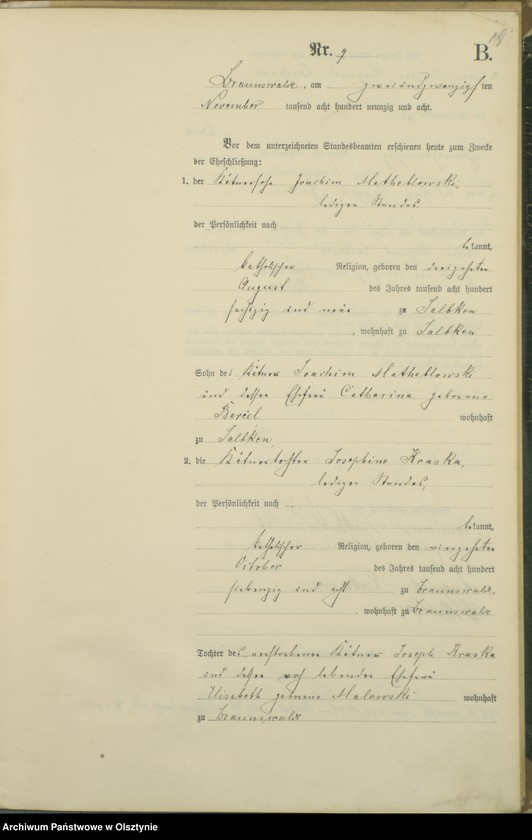 Nr. 9
B.
Braunswalde, am zweiundzwanzigsten
November tausend acht hundert neunzig und acht.
Vor dem unterzeichneten Standesbeamten erschienen heute zum Zwecke
der Eheschließung:
1. der Kätnersohn Joachim
ledigen Standes
der Persönlichkeit nach
bekannt,
katholischer Religion, geboren den dreizehnten
August des Jahres tausend acht hundert
sechzig und neun zu Salbken
, wohnhaft zu Salbken
Sohn des Kätners Joachim
und dessen Ehefrau Catharina geborene
wohnhaft
zu Salbken
2. die Kätnertochter Josephine Kraska,
ledigen Standes,
der Persönlichkeit nach
bekannt,
katholischer Religion, geboren den vierzehnten
October des Jahres tausend acht hundert
siebenzig und acht zu Braunswalde,
, wohnhaft zu Braunswalde
Tochter des verstorbenen Kätners Joseph Kraska
und dessen noch lebenden Ehefrau
Elisabeth geborene Malewski wohnhaft
zu Braunswalde
Archiwum Państwowe w Olsztynie